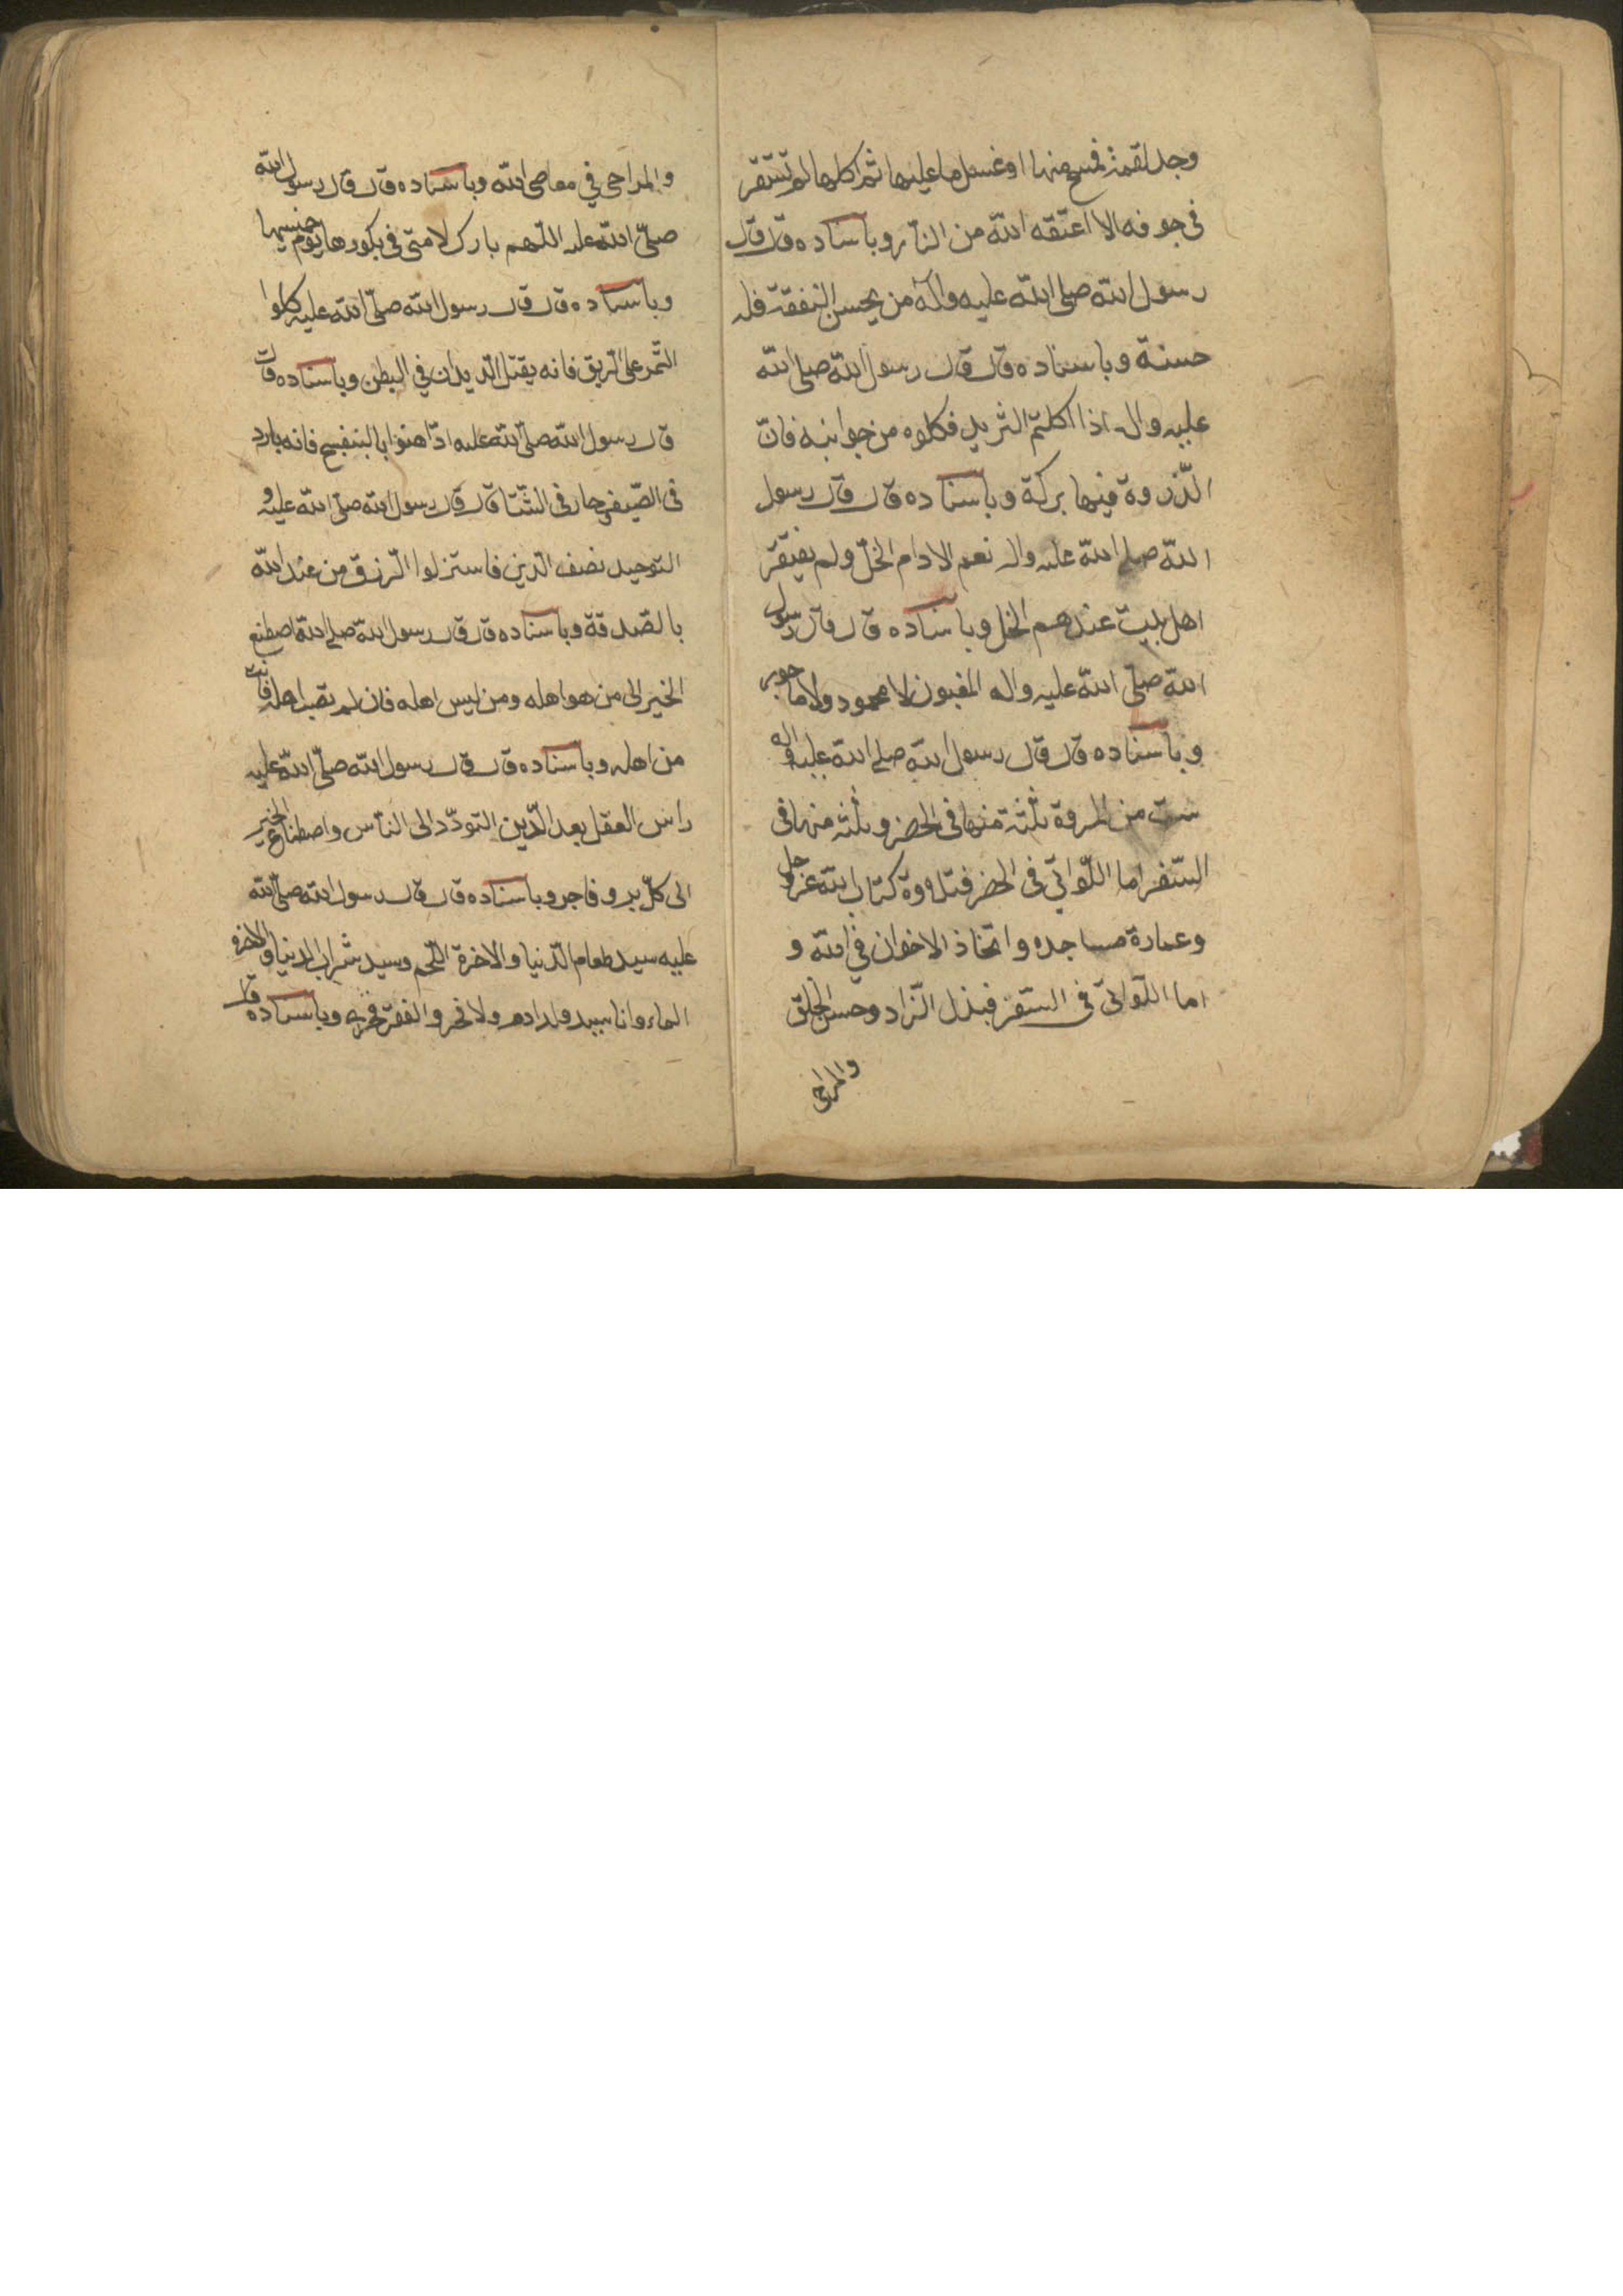 وجد لقمة فمسح منها او غسل ما عليها ثم اكلها لم تستقر
فى جوفه الا اعتقه الله من النار وباسناده قال قال
رسول الله صلى الله عليه وآله من يحسن النفقة فله
حسنة وباسناده قال قال رسول الله صلى الله
عليه واله اذا اكلتم الثريد فكلوه من جوانبه فانّ
الذّروة فيها بركة وباسناده قال قال رسول
الله صلى الله عليه واله نعم الادام الخلّ ولم يفتقر
اهل بيت عندهم الخل وباسناده قال قال رسول
الله صلّى الله عليه واله المغبون لا محمود ولا ماجور
وباسناده قال قال رسول الله صلى الله عليه واله
ست من المروة ثلثة منها فى الحضر وثلثه منها فى
السّفر اما اللّواتى فى الحضر فتلاوة كتاب الله عز وجل
وعمارة مساجده واتخاذ الاخوان في الله و
اما اللّواتى فى السّفر فبذل الزّاد وحسن الخلق
والمزاح
والمزاح في معاصى الله وباسناده قال قال رسول الله
صلّى الله عليه اللّهم بارك لامتى فى بكورها يوم خميسها
وباسناده قال قال رسول الله صلّى الله عليه كلوا
التّمر على الرّيق فانه يقتل الدّيدان في البطن وباسناده قال
قال رسول الله صلّى الله عليه ادّاهنوا بالبنفسج فانه بارد
فى الصّيف حار فى الشّتا قال قال رسول الله صلى الله عليه و
التوحيد نصف الدّين فاستنزلوا الرّزق من عند الله
بالصّدقة وباسناده قال قال رسول الله صلى الله اصطنع
الخير الى من هو اهله ومن ليس اهله فان لم تصب اهله فانت
من اهله وباسناده قال قال رسول الله صلّى الله عليه
راس العقل بعد الدّين التودّد الى الناس واصطناع الخير
الى كلّ بر وفاجر وباسناده قال قال رسول الله صلّى الله
عليه سيد طعام الدّنيا والاخرة اللّحم وسيد شراب الدنيا والاخرة
الماء وانا سيد ولد ادم ولا فخر والفقر فخرى وباسناده قال